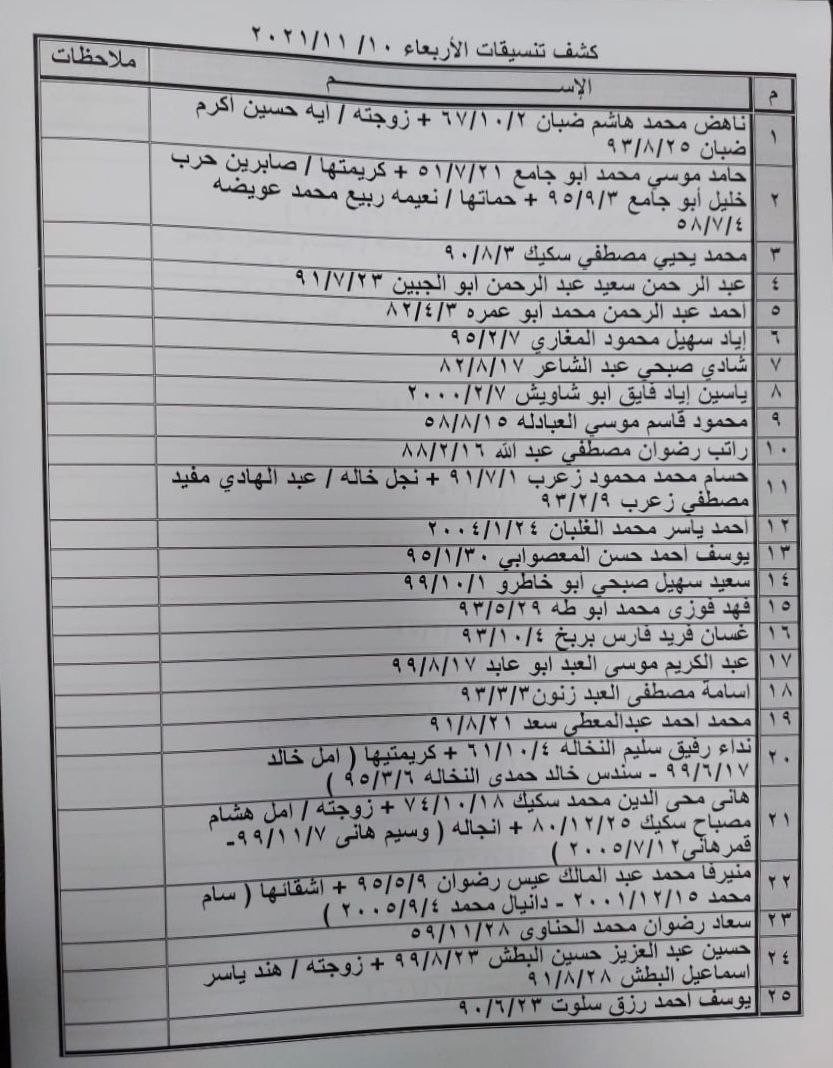 كشف تنسيقات الأربعاء ١٠/ ٢٠٢١/١١
م الإســـــــــــــــــم ملاحظات
١ ناهض محمد هاشم ضبان ٦٧/١٠/٢ + زوجته / ايه حسين اكرم
ضبان ٩٣/٨/٢٥
٢ حامد موسي محمد ابو جامع ٥١/٧/٢١ + كريمتها / صابرين حرب
خليل أبو جامع ٩٥/٩/٣ + حماتها / نعيمه ربيع محمد عويضه
٥٨/٧/٤
٣ محمد يحيي مصطفي سكيك ٩٠/٨/٣
٤ عبد الرحمن سعيد عبد الرحمن ابو الجبين ٩١/٧/٢٣
٥ احمد عبد الرحمن محمد ابو عمره ٨٢/٤/٣
٦ إياد سهيل محمود المغاري ٩٥/٢/٧
٧ شادي صبحي عبد الشاعر ٨٢/٨/١٧
٨ ياسين إياد فايق ابو شاويش ٢٠٠٠/٢/٧
٩ محمود قاسم موسي العبادله ٥٨/٨/١٥
١٠ راتب رضوان مصطفي عبد الله ٨٨/٢/١٦
١١ حسام محمد محمود زعرب ٩١/٧/١ + نجل خاله / عبد الهادي مفيد
مصطفي زعرب ٩٣/٢/٩
١٢ احمد ياسر محمد الغلبان ٢٠٠٤/١/٢٤
١٣ يوسف احمد حسن المعصوابي ٩٥/١/٣٠
١٤ سعيد سهيل صبحي ابو خاطرو ٩٩/١٠/١
١٥ فهد فوزى محمد ابو طه ٩٣/٥/٢٩
١٦ غسان فريد فارس بربخ ٩٣/١٠/٤
١٧ عبد الكريم موسى العبد ابو عابد ٩٩/٨/١٧
١٨ اسامة مصطفى العبد زنون٩٣/٣/٣
١٩ محمد احمد عبدالمعطى سعد ٩١/٨/٢١
٢٠ نداء رفيق سليم النخاله ٦١/١٠/٤ + كريمتيها ( امل خالد
٩٩/٦/١٧ - سندس خالد حمدى النخاله ٩٥/٣/٦ )
٢١ هانى محى الدين محمد سكيك ٧٤/١٠/١٨ + زوجته / امل هشام
مصباح سكيك ٨٠/١٢/٢٥ + انجاله ( وسيم هانى ٩٩/١١/٧-
قمرهانى٢٠٠٥/٧/١٢ )
٢٢ منيرفا محمد عبد المالك عيس رضوان ٩٥/٥/٩ + اشقائها ( سام
محمد ٢٠٠١/١٢/١٥ - دانيال محمد ٢٠٠٥/٩/٤ )
٢٣ سعاد رضوان محمد الحناوى ٥٩/١١/٢٨
٢٤ حسين عبد العزيز حسين البطش ٩٩/٨/٢٣ + زوجته / هند ياسر
اسماعيل البطش ٩١/٨/٢٨
٢٥ يوسف احمد رزق سلوت ٩٠/٦/٢٣